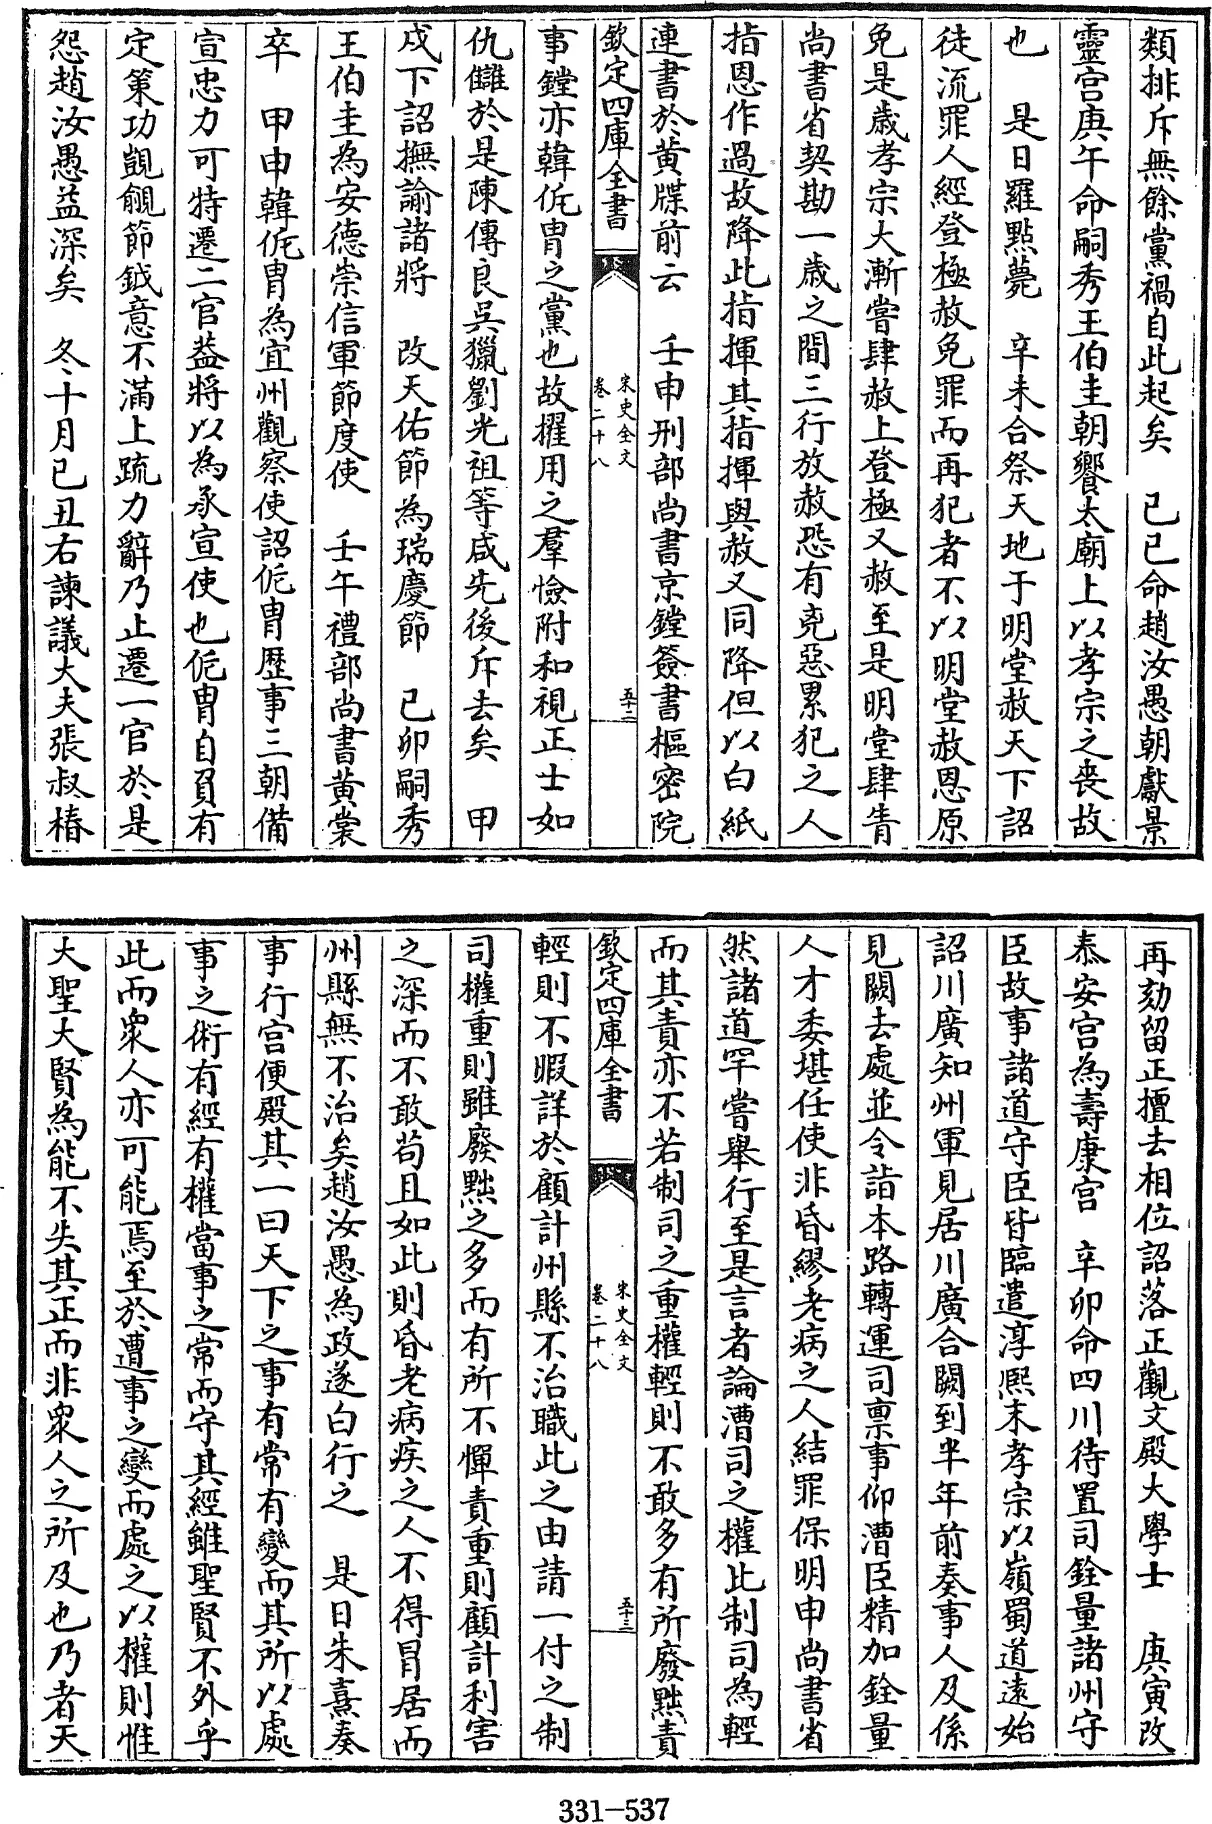 類排斥無餘黨禍自此起矣　己巳命趙汝愚朝獻景
靈宫庚午命嗣秀王伯圭朝饗太廟上以孝宗之喪故
也　是日羅㸃薨　辛未合祭天地于明堂赦天下詔
徒流罪人經登極赦免罪而再犯者不以明堂赦恩原
免是歳孝宗大漸嘗肆赦上登極又赦至是明堂肆眚
尚書省契勘一歳之間三行放赦恐有兇惡累犯之人
指恩作過故降此指揮其指揮與赦又同降但以白紙
連書於黄牒前云　壬申刑部尚書京鏜簽書樞密院
欽定四庫全書
宋史全文
卷二十八
五十二
事鏜亦韓侂胄之黨也故擢用之羣憸附和視正士如
仇讎於是陳傅良吳獵劉光祖等咸先後斥去矣　甲
戍下詔撫諭諸將　改天佑節為瑞慶節　己卯嗣秀
王伯圭為安德崇信軍節度使　壬午禮部尚書黄裳
卒　甲申韓侂胄為宜州觀察使詔侂胄歴事三朝備
宣忠力可特遷二官葢將以為承宣使也侂胄自負有
定策功覬覦節鉞意不滿上疏力辭乃止遷一官於是
怨趙汝愚益深矣　冬十月己丑右諫議大夫張叔椿
再劾留正擅去相位詔落正觀文殿大學士　庚寅改
泰安宫為壽康宫　辛卯命四川待置司銓量諸州守
臣故事諸道守臣皆臨遣淳熙末孝宗以嶺蜀道遠始
詔川廣知州軍見居川廣合闕到半年前奏事人及係
見闕去處並令詣本路轉運司禀事仰漕臣精加銓量
人才委堪任使非昏繆老病之人結罪保明申尚書省
然諸道罕嘗舉行至是言者論漕司之權比制司為輕
而其責亦不若制司之重權輕則不敢多有所廢黜責
欽定四庫全書
宋史全文
卷二十八
五十三
輕則不暇詳於顧計州縣不治職此之由請一付之制
司權重則雖廢黜之多而有所不憚責重則顧計利害
之深而不敢茍且如此則昏老病疾之人不得冒居而
州縣無不治矣趙汝愚為政遂白行之　是日朱熹奏
事行宫便殿其一曰天下之事有常有變而其所以處
事之術有經有權當事之常而守其經雖聖賢不外乎
此而衆人亦可能焉至於遭事之變而處之以權則惟
大聖大賢為能不失其正而非衆人之所及也乃者天
331-537